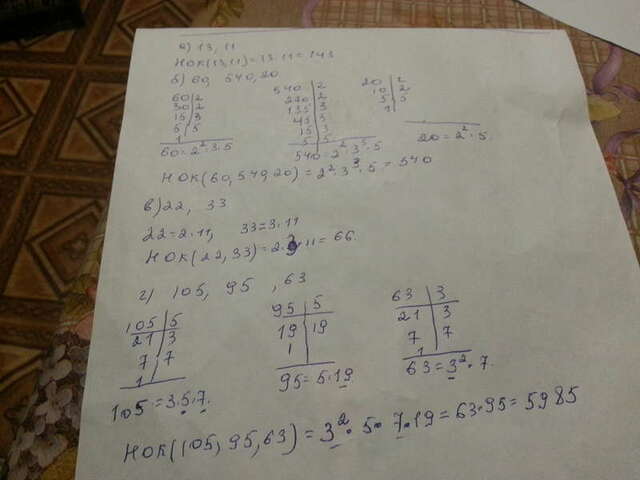 а) 13, 11
НОК(13,11)=13·11=143
б) 60, 540, 20
60|2
30|2
15|3
5|5
1
60=2²·3·5
540|2
270|2
135|3
45|3
15|3
5|5
540=2²·3³·5
20|2
10|2
5|5
1
20=2²·5.
НОК(60,540,20)=2²·3³·5=540
в) 22, 33
22=2·11, 33=3·11
НОК(22,33)=2·3·11=66.
г) 105, 95, 63
105|5
21|3
7|7
1
105=3·5·7.
95|5
19|19
1
95=5·19.
63|3
21|3
7|7
1
63=3²·7.
НОК(105,95,63)=3²·5·7·19=63·95=5985